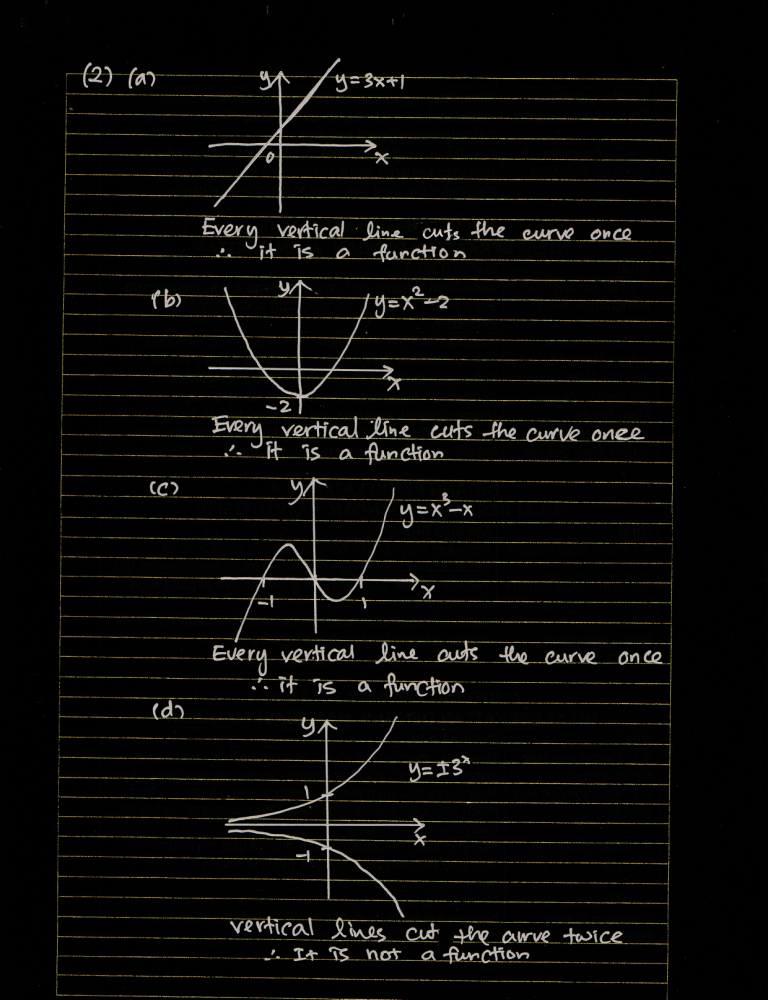 (2) (a)
y
y=3x+1
0
x
Every vertical line cuts the curve once
∴ it is a function
(b)
y
y=x²-2
x
-2
Every vertical line cuts the curve once
∴ it is a function
(c)
y
y=x³-x
-1
1
x
Every vertical line cuts the curve once
∴ it is a function
(d)
y
y=±3ˣ
1
x
-1
vertical lines cut the curve twice
∴ It is not a function